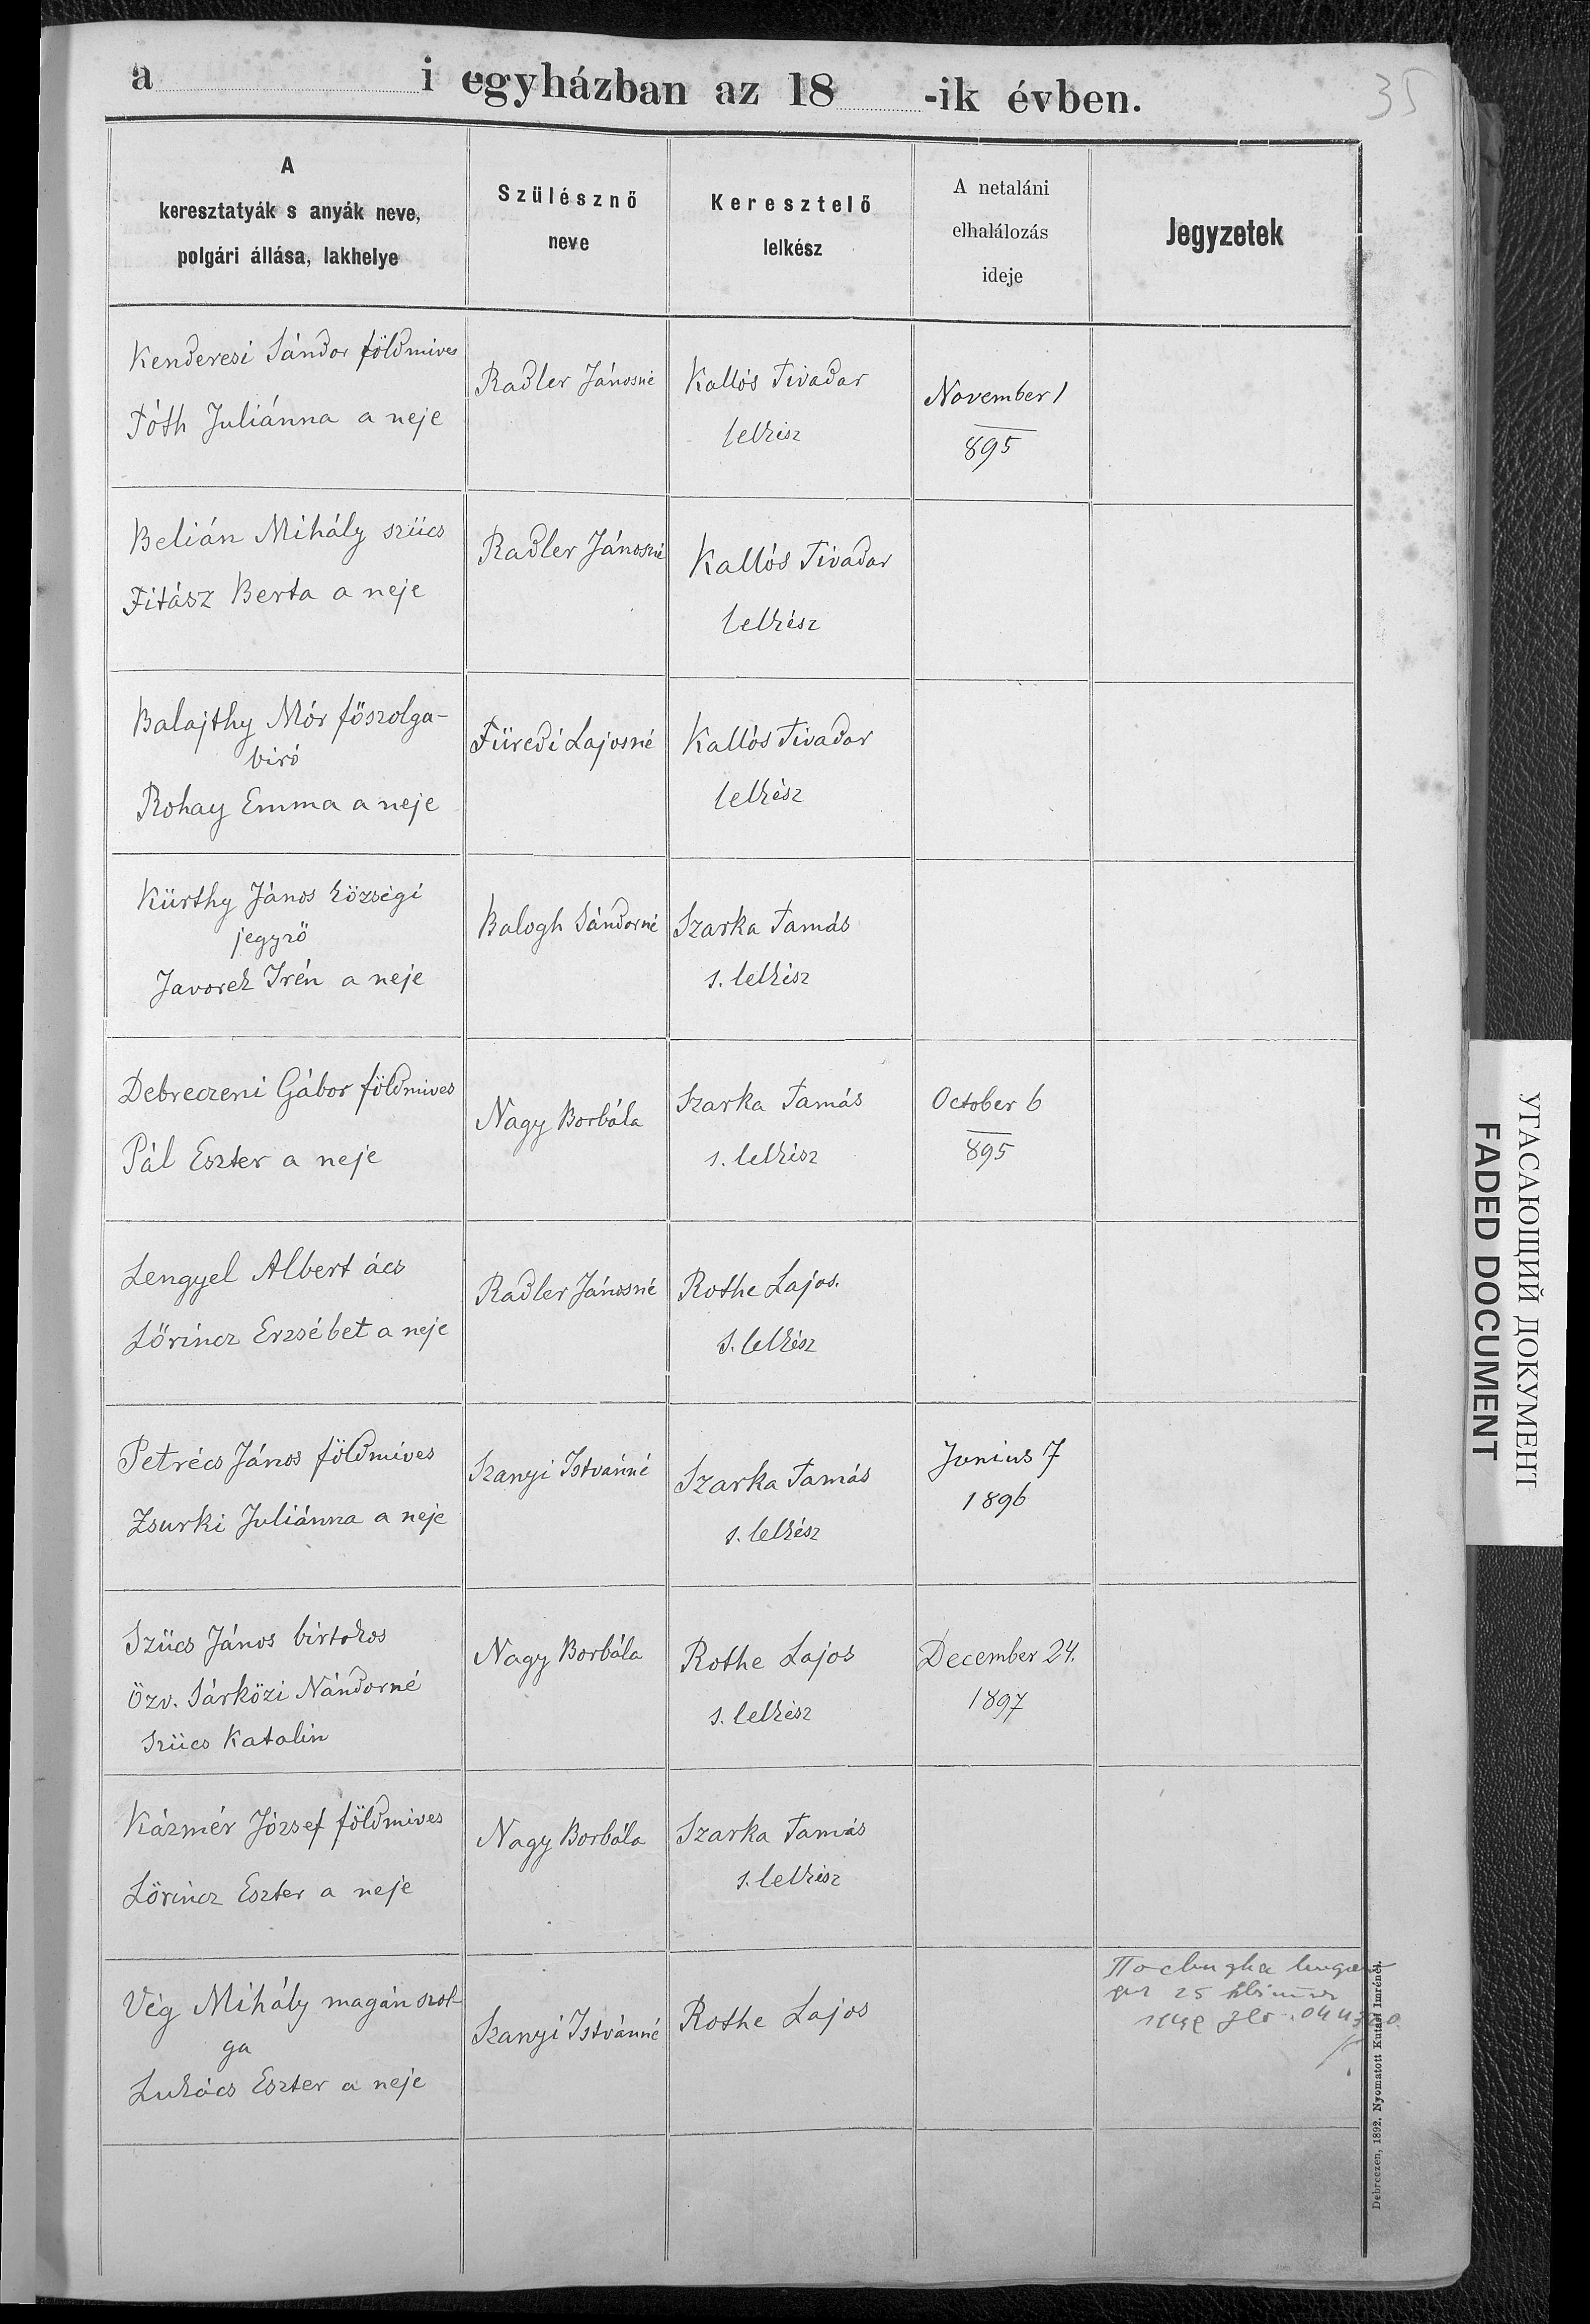 a i egyházban az 18 -ik évben.
35
A
keresztatyák s anyák neve,
polgári állása, lakhelye
Szülésznő
neve
Keresztelő
lelkész
A netaláni
elhalálozás
ideje
Jegyzetek
Kenderesi Sándor földmives
Tóth Juliánna a neje
Radler Jánosné
Kallós Tivadar
lelkész
November 1
895
Belián Mihály szücs
Titász Berta a neje
Radler Jánosné
Kallós Tivadar
lelkész
Balajthy Mór főszolga-
biró
Rohay Emma a neje
Füredi Lajosné
Kallós Tivadar
lelkész
Kürthy János községi
jegyző
Javorek Irén a neje
Balogh Sándorné
Szarka Tamás
s. lelkész
Debreczeni Gábor földmives
Pál Eszter a neje
Nagy Borbála
Szarka Tamás
s. lelkész
October 6
895
Lengyel Albert ács
Lőrincz Erzsébet a neje
Radler Jánosné
Rothe Lajos.
s. lelkész
Petrécs János földmives
Zsurki Juliánna a neje
Szanyi Istvánné
Szarka Tamás
s. lelkész
Junius 7
1896
Szücs János birtokos
Özv. Sárközi Nándorné
Szücs Katalin
Nagy Borbála
Rothe Lajos
s. lelkész
December 24.
1897
Kázmér József földmives
Lőrincz Eszter a neje
Nagy Borbála
Szarka Tamás
s. lelkész
Vég Mihály magán szol-
ga
Lukács Eszter a neje
Szanyi Istvánné
Rothe Lajos
25
Debreczen, 1892. Nyomatott Kutasi Imrénél.
УГАСАЮЩИЙ ДОКУМЕНТ
FADED DOCUMENT